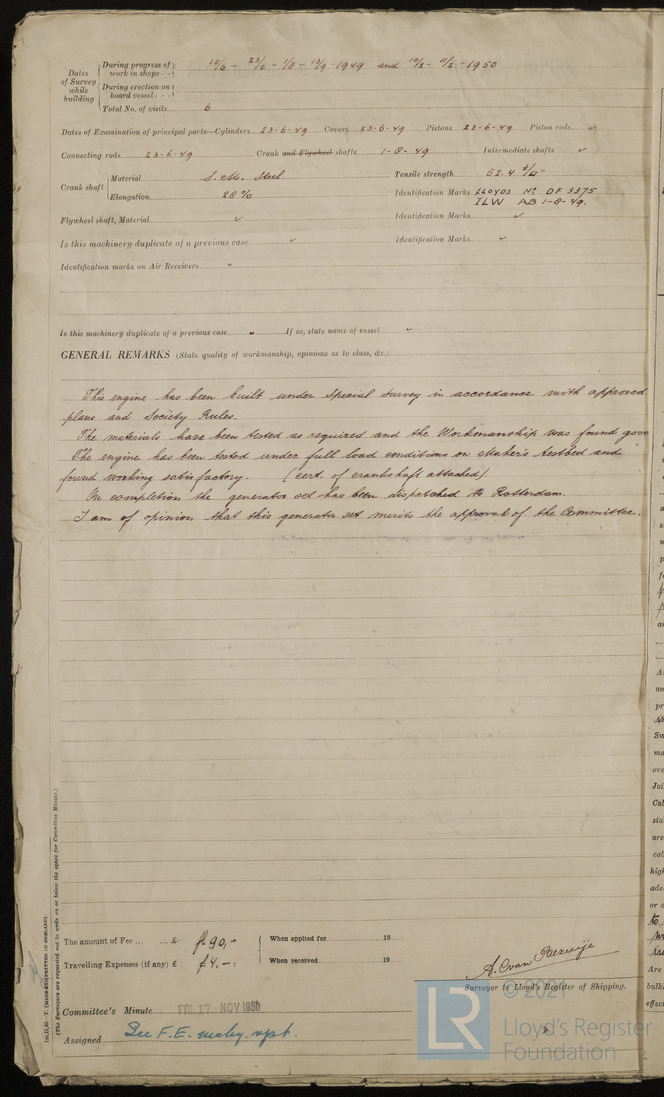 Dates of Survey while building
During progress of work in shops - - 10/6 - 23/6 - 1/8 - 13/9 - 1949 and 10/2 - 11/2 - 1950
During erection on board vessel - - -
Total No. of visits 6
Dates of Examination of principal parts—Cylinders 23-6-49 Covers 23-6-49 Pistons 23-6-49 Piston rods ✓
Connecting rods 23-6-49 Crank and Flywheel shafts 1-8-49 Intermediate shafts ✓
Crank shaft Material S.M. Steel Tensile strength 52.4
Elongation 28% Identification Marks LLOYDS No DF 3375
ILW AB 1-8-49.
Flywheel shaft, Material ✓ Identification Marks ✓
Is this machinery duplicate of a previous case ✓ Identification Marks ✓
Identification marks on Air Receivers ✓
Is this machinery duplicate of a previous case ✓ If so, state name of vessel ✓
GENERAL REMARKS (State quality of workmanship, opinions as to class, &c.)
This engine has been built under Special Survey in accordance with approved
plans and Society Rules.
The materials have been tested as required and the Workmanship was found good
The engine has been tested under full load conditions on Maker's testbed and
found working satisfactory. (cert. of crankshaft attached).
On completion the generator set has been dispatched to Rotterdam.
I am of opinion that this generator set merits the approval of the Committee.
The amount of Fee ... ... £ fl 90,- When applied for 19
Travelling Expenses (if any) £ f 4.-: When received 19
A. C. van
Surveyor to Lloyd's Register of Shipping.
Committee's Minute FRI. 17 NOV 1950
Assigned See F.E. mchy. rpt.
(MADE AND PRINTED IN ENGLAND)
(The Surveyors are requested not to write on or below the space for Committee Minute.)
LR © 2021
Lloyd's Register
Foundation